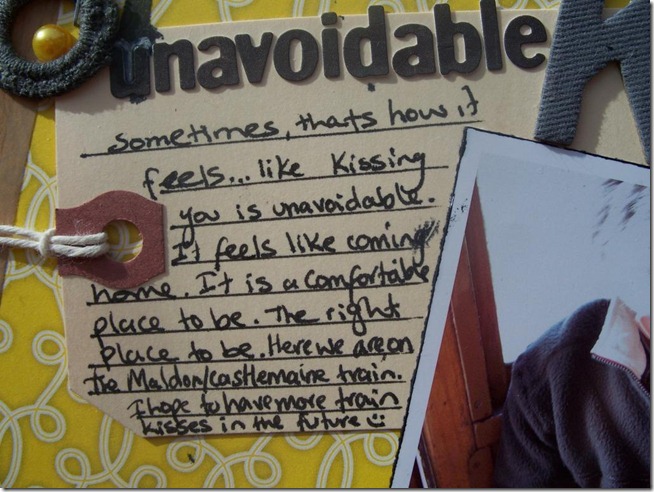 unavoidable
sometimes, thats how it
feels... like kissing
you is unavoidable.
It feels like coming
home. It is a comfortable
place to be. The right
place to be. Here we are on
the Maldon/castlemaine train.
I hope to have more train
kisses in the future ☺